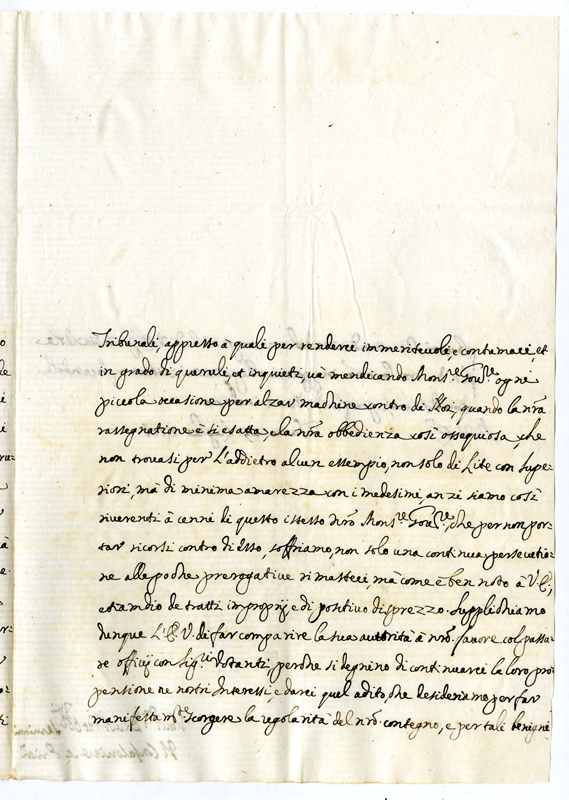 Tribunali, appresso à quali per renderci immeritevoli, e contumaci, et
in grado di queruli, et inquieti, và mendicando Mons.re Gov.re ogni
piccola occasione per alzar machine contro di Noi, quando la nrã
rassegnatione è sì esatta, e la nrã obbedienza così ossequiosa, che
non trovasi per l'addietro alcun essempio, non solo di Lite con Supe-
riori, mà di minima amarezza con i medesimi, anzi siamo così
riverenti à cenni di questo istesso nrõ Mons.re Gov.re, che per non por-
tar ricorsi contro di esso, soffriamo, non solo una continua persecutio-
ne alle poche prerogative rimasteci, mà come è ben noto à V. E.,
et anche de tratti improprij e di positivo disprezzo. Supplichiamo
dunque l'E. V. di far comparire la sua autorità à nrõ favore col passa-
re officij con Sig.ri Votanti, perche si degnino di continuarci la loro pro-
pensione ne nostri Interessi, e darci quel adito, che desideriamo per far
manifestam.te scorgere la regolarità del nrõ contegno, e per tali benigni